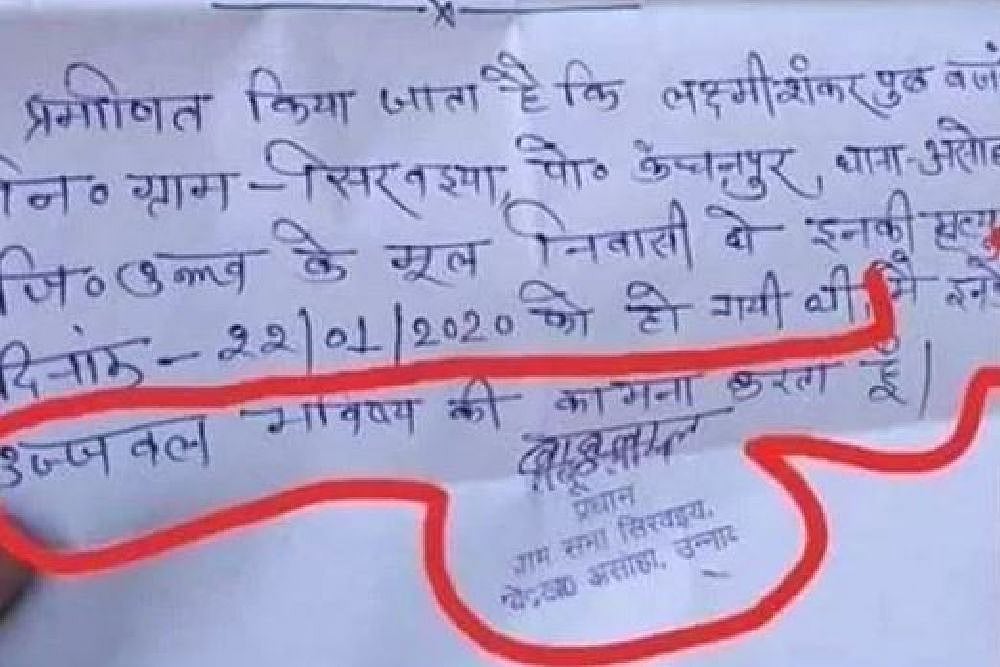 प्रमाणित किया जाता है कि लक्ष्मीशंकर पुत्र
नि० ग्राम - सिरवइया, पो० कंचनपुर, थाना-
जि० उन्नाव के मूल निवासी थे इनकी मृत्यु
दिनांक - 22/01/2020 को हो गयी थी, मै इनके
उज्जवल भविष्य की कामना करता हूँ।
प्रधान
ग्राम सभा सिरवइया,
असोहा, उन्नाव